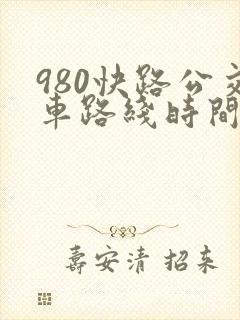 980快路公交
車路綫時間
壽安清 招来